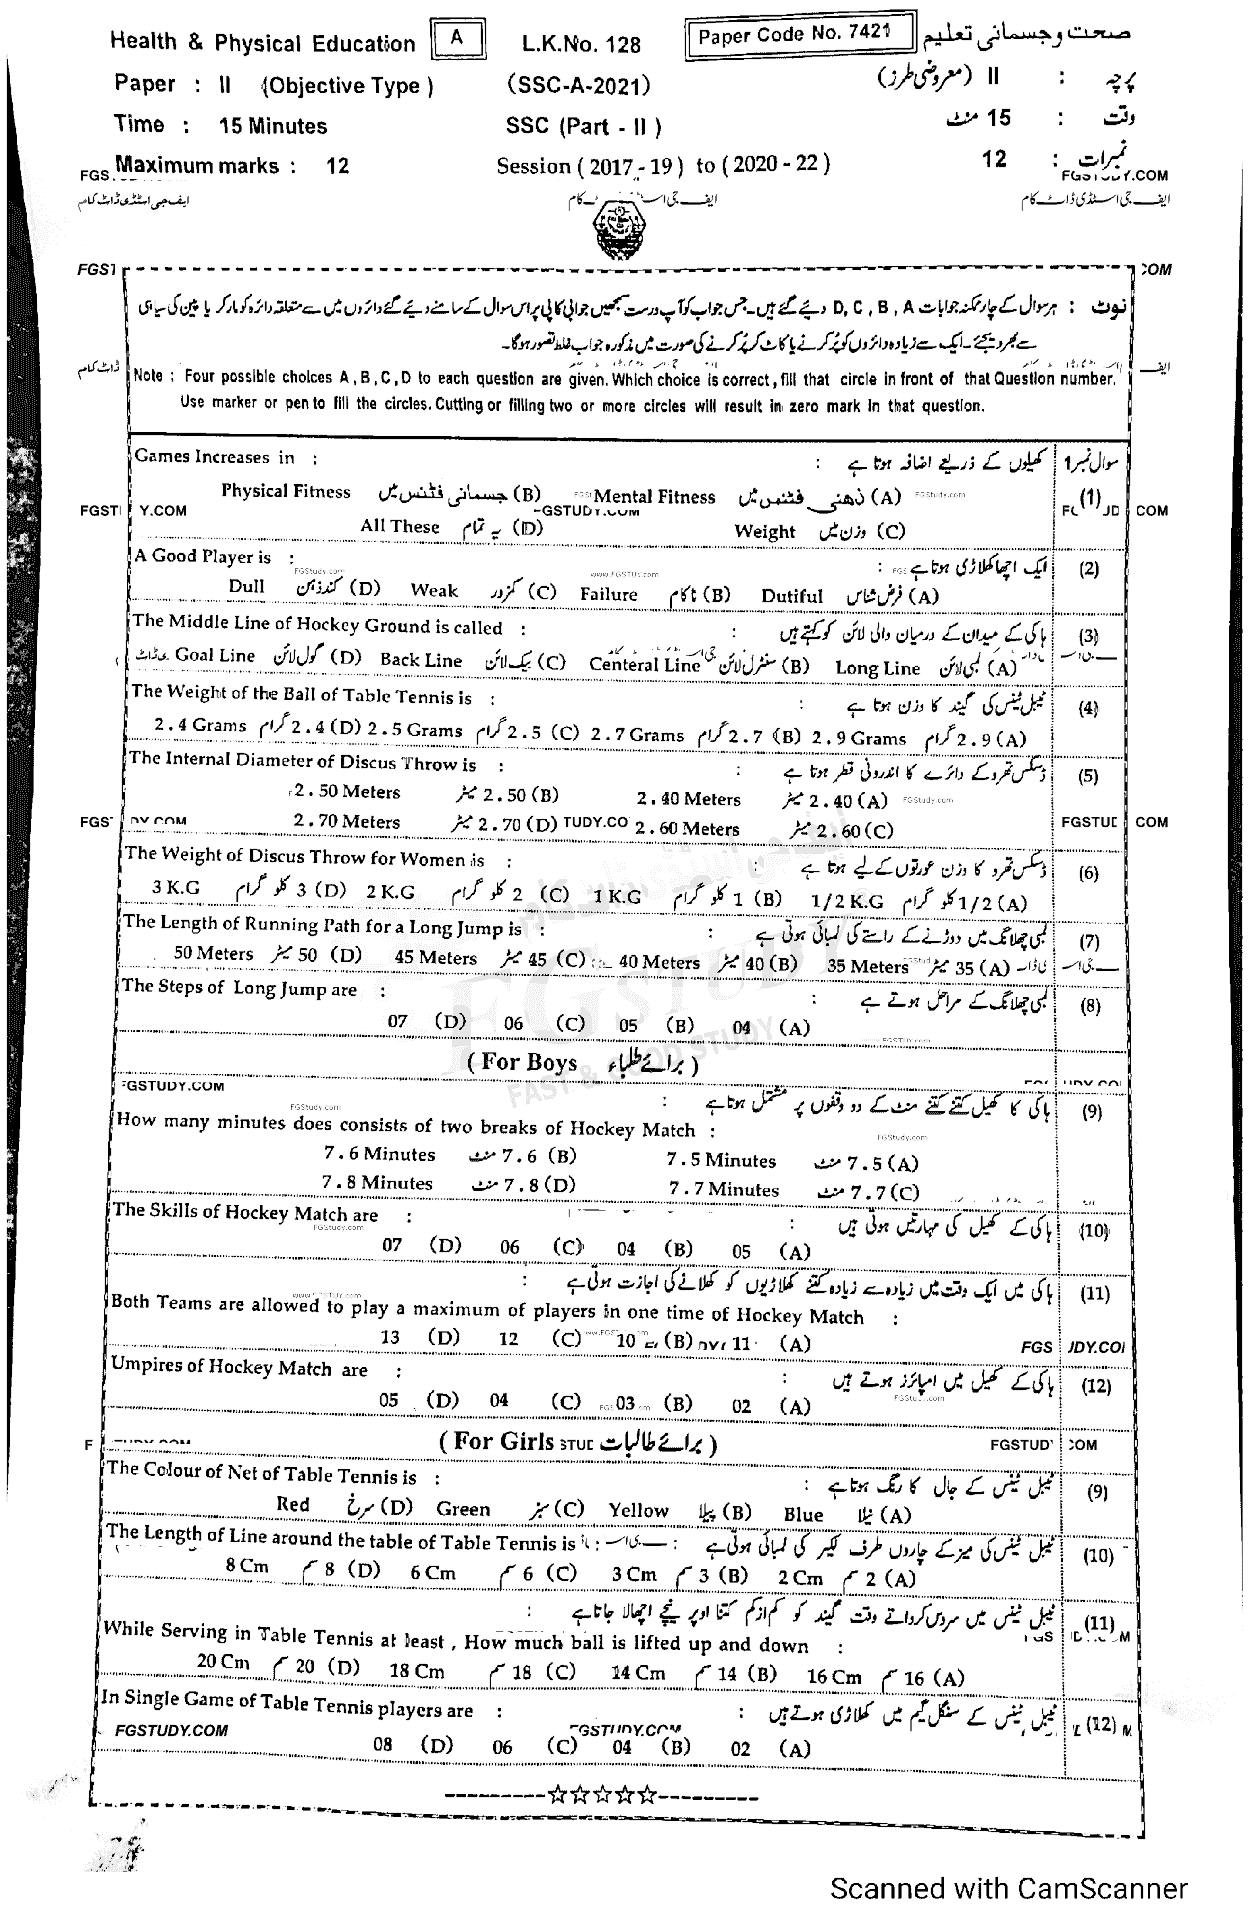 Health & Physical Education A L.K.No. 128 Paper Code No. 7421 صحت و جسمانی تعلیم
Paper : II (Objective Type) (SSC-A-2021) پرچہ : II (معروضی طرز)
Time : 15 Minutes SSC (Part - II) وقت : 15 منٹ
Maximum marks : 12 Session (2017-19) to (2020-22) نمبرات : 12
FGS FGSTUDY.COM
ایف جی اسٹڈی ڈاٹ کام
نوٹ : ہر سوال کے چار ممکنہ جوابات D, C, B, A دیے گئے ہیں۔ جس جواب کو آپ درست سمجھیں جوابی کاپی پر اس سوال کے سامنے دیے گئے دائروں میں سے متعلقہ دائرہ کو مارکر یا پین کی سیاہی
سے بھر دیجئے۔ ایک سے زیادہ دائروں کو پُر کرنے یا کاٹ کر پُر کرنے کی صورت میں مذکورہ جواب غلط تصور ہوگا۔
Note : Four possible choices A, B, C, D to each question are given. Which choice is correct, fill that circle in front of that Question number.
Use marker or pen to fill the circles. Cutting or filling two or more circles will result in zero mark in that question.
Games Increases in : کھیلوں کے ذریعے اضافہ ہوتا ہے : سوال نمبر 1
Physical Fitness جسمانی فٹنس میں (B) Mental Fitness ذھنی فٹنس میں (A) (1)
All These یہ تمام (D) Weight وزن میں (C)
A Good Player is : ایک اچھا کھلاڑی ہوتا ہے : (2)
Dull کندذہن (D) Weak کمزور (C) Failure ناکام (B) Dutiful فرض شناس (A)
The Middle Line of Hockey Ground is called : ہاکی کے میدان کے درمیان والی لائن کو کہتے ہیں : (3)
Goal Line گول لائن (D) Back Line بیک لائن (C) Centeral Line سنٹرل لائن (B) Long Line لمبی لائن (A)
The Weight of the Ball of Table Tennis is : ٹیبل ٹینس کی گیند کا وزن ہوتا ہے : (4)
2.4 Grams 2.4 گرام (D) 2.5 Grams 2.5 گرام (C) 2.7 Grams 2.7 گرام (B) 2.9 Grams 2.9 گرام (A)
The Internal Diameter of Discus Throw is : ڈسکس تھرو کے دائرے کا اندرونی قطر ہوتا ہے : (5)
2.50 Meters 2.50 میٹر (B) 2.40 Meters 2.40 میٹر (A)
2.70 Meters 2.70 میٹر (D) 2.60 Meters 2.60 میٹر (C)
The Weight of Discus Throw for Women is : ڈسکس تھرو کا وزن عورتوں کے لیے ہوتا ہے : (6)
3 K.G 3 کلو گرام (D) 2 K.G 2 کلو گرام (C) 1 K.G 1 کلو گرام (B) 1/2 K.G 1/2 کلو گرام (A)
The Length of Running Path for a Long Jump is : لمبی چھلانگ میں دوڑنے کے راستے کی لمبائی ہوتی ہے : (7)
50 Meters 50 میٹر (D) 45 Meters 45 میٹر (C) 40 Meters 40 میٹر (B) 35 Meters 35 میٹر (A)
The Steps of Long Jump are : لمبی چھلانگ کے مراحل ہوتے ہے : (8)
07 (D) 06 (C) 05 (B) 04 (A)
(For Boys برائے طلباء)
ہاکی کا کھیل کتنے کتنے منٹ کے دو وقفوں پر مشتمل ہوتا ہے : (9)
How many minutes does consists of two breaks of Hockey Match :
7.6 Minutes 7.6 منٹ (B) 7.5 Minutes 7.5 منٹ (A)
7.8 Minutes 7.8 منٹ (D) 7.7 Minutes 7.7 منٹ (C)
The Skills of Hockey Match are : ہاکی کے کھیل کی مہارتیں ہوتی ہیں : (10)
07 (D) 06 (C) 04 (B) 05 (A)
ہاکی میں ایک وقت میں زیادہ سے زیادہ کتنے کھلاڑیوں کو کھلانے کی اجازت ہوتی ہے : (11)
Both Teams are allowed to play a maximum of players in one time of Hockey Match :
13 (D) 12 (C) 10 (B) 11 (A)
Umpires of Hockey Match are : ہاکی کے کھیل میں امپائرز ہوتے ہیں : (12)
05 (D) 04 (C) 03 (B) 02 (A)
(For Girls برائے طالبات)
The Colour of Net of Table Tennis is : ٹیبل ٹینس کے جال کا رنگ ہوتا ہے : (9)
Red سرخ (D) Green سبز (C) Yellow پیلا (B) Blue نیلا (A)
The Length of Line around the table of Table Tennis is : ٹیبل ٹینس کی میز کے چاروں طرف لکیر کی لمبائی ہوتی ہے : (10)
8 Cm 8 سم (D) 6 Cm 6 سم (C) 3 Cm 3 سم (B) 2 Cm 2 سم (A)
ٹیبل ٹینس میں سروس کرواتے وقت گیند کو کم از کم کتنا اوپر نیچے اچھالا جاتا ہے : (11)
While Serving in Table Tennis at least, How much ball is lifted up and down :
20 Cm 20 سم (D) 18 Cm 18 سم (C) 14 Cm 14 سم (B) 16 Cm 16 سم (A)
In Single Game of Table Tennis players are : ٹیبل ٹینس کے سنگل گیم میں کھلاڑی ہوتے ہیں : (12)
FGSTUDY.COM
08 (D) 06 (C) 04 (B) 02 (A)
---------☆☆☆☆☆---------
Scanned with CamScanner